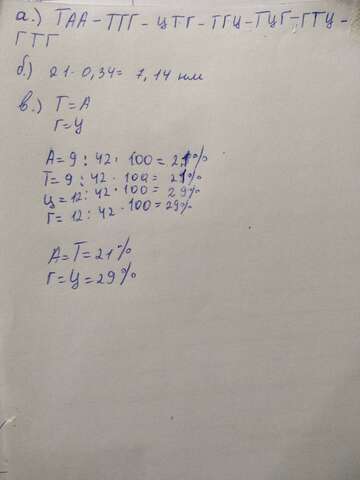 а.) ТАА - ТТГ - ЦТГ - ТГЦ - ТЦГ - ГТЦ -
ГТГ
б.) 21 · 0,34 = 7,14 нм
в.) Т = А
Г = Ц
А = 9 : 42 · 100 = 21%
Т = 9 : 42 · 100 = 21%
Ц = 12 : 42 · 100 = 29%
Г = 12 : 42 · 100 = 29%
А = Т = 21%
Г = Ц = 29%